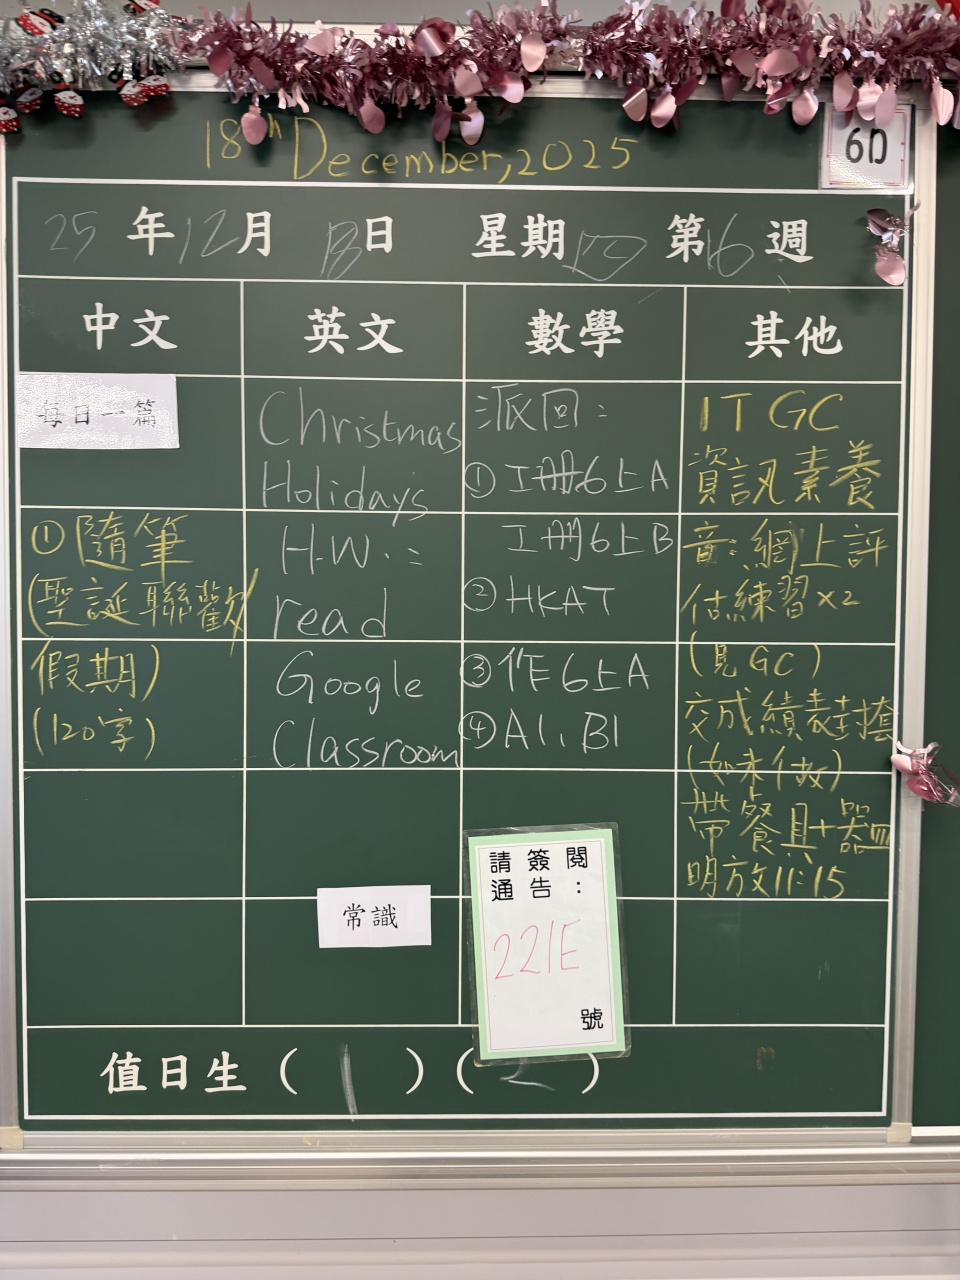 18th December, 2025
6D
25年12月18日 星期四 第16週
中文 英文 數學 其他
每日一篇
①隨筆
(聖誕聯歡/
假期)
(120字)
Christmas
Holidays
H.W.:
read
Google
Classroom
派回:
①工冊6上A
工冊6上B
②HKAT
③作6上A
④A1, B1
IT GC
資訊素養
音:網上評
估練習×2
(見GC)
交成績表封套
(如未做)
帶餐具+器皿
明放11:15
常識
請簽閱
通告:
221E
號
值日生(1)(2)